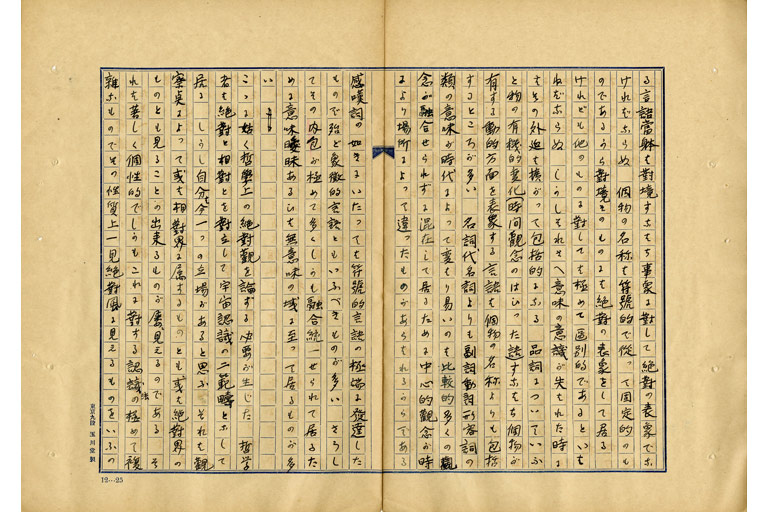 る言語當躰を對境すなはち事象に對して絶對の表象でな
ければならぬ 個物の名称も符號的で從つて固定的のも
のであるから對境そのものよも絶對の表象をして居る
けれども他のものに對しても極めて區別的であるといは
ねばならぬ しかしそれさへ意味の意識が失もれた時に
もその外延を擴がつて包括的になる 品詞についていふ
と物の有機的變化時間觀念のはひつた語すなはち個物が
有する動的方面を表象する言語も個物の名称よりも包括
するところが多い 名詞代名詞よりも副詞動詞形容詞の
類の意味が時代によつて變もり易いのも比較的多くの觀
念が融合せられずに混在して居るために中心的觀念が時
により場所によつて違つたものがあらもれるからである
感嘆詞の如きにいたつても符號的言語の極端に發達した
もので殆ど象徴的言語ともいふべきものが多い そうし
てその内包が極めて多くしかも融合統一せられて居るた
めに意味曖昧あるひも無意味の域に至つて居るものが多
い
こゝに姑く哲學上の絶對觀を論ずる必要が生じた 哲学
者も絶對と相對とを對立して宇宙認識の二範疇となして
居る しかし自分も今一つの立場があると思ふ それも觀
察点によつて或も相對界に属するものとも或も絶對界の
ものとも見ることの出来るものが屢見えるのである そ
れも著しく個性的でしかもこれに對する認識法の極めて複
雜なものでその性質上一見絶對風に見えるものをいふの
東京九段 玉川堂製
12…25